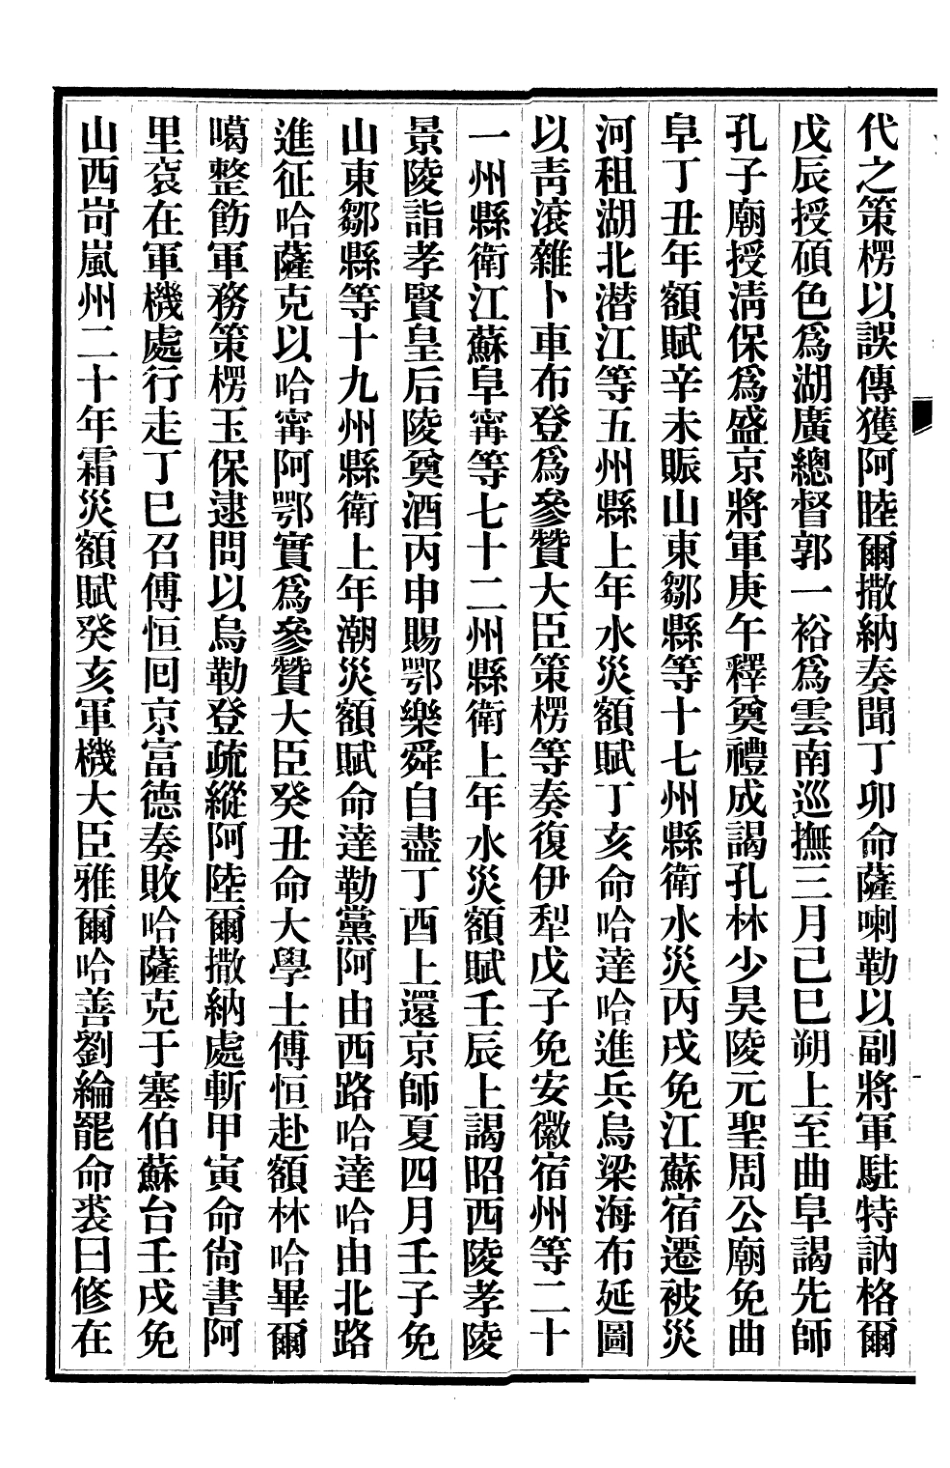 代之策楞以誤傳獲阿睦爾撒納奏聞丁卯命薩喇勒以副將軍駐特訥格爾
戊辰授碩色爲湖廣總督郭一裕爲雲南巡撫三月己巳朔上至曲阜謁先師
孔子廟授淸保爲盛京將軍庚午釋奠禮成謁孔林少昊陵元聖周公廟免曲
阜丁丑年額賦辛未賑山東鄒縣等十七州縣衛水災丙戌免江蘇宿遷被災
河租湖北潛江等五州縣上年水災額賦丁亥命哈達哈進兵烏梁海布延圖
以靑滾雜卜車布登爲參贊大臣策楞等奏復伊犁戊子免安徽宿州等二十
一州縣衛江蘇阜寗等七十二州縣衛上年水災額賦壬辰上謁昭西陵孝陵
景陵詣孝賢皇后陵奠酒丙申賜鄂樂舜自盡丁酉上還京師夏四月壬子免
山東鄒縣等十九州縣衛上年潮災額賦命達勒黨阿由西路哈達哈由北路
進征哈薩克以哈寗阿鄂實爲參贊大臣癸丑命大學士傅恒赴額林哈畢爾
噶整飭軍務策楞玉保逮問以烏勒登疏縱阿陸爾撒納處斬甲寅命尙書阿
里袞在軍機處行走丁巳召傅恒回京富德奏敗哈薩克于塞伯蘇台壬戌免
山西岢嵐州二十年霜災額賦癸亥軍機大臣雅爾哈善劉綸罷命裘曰修在